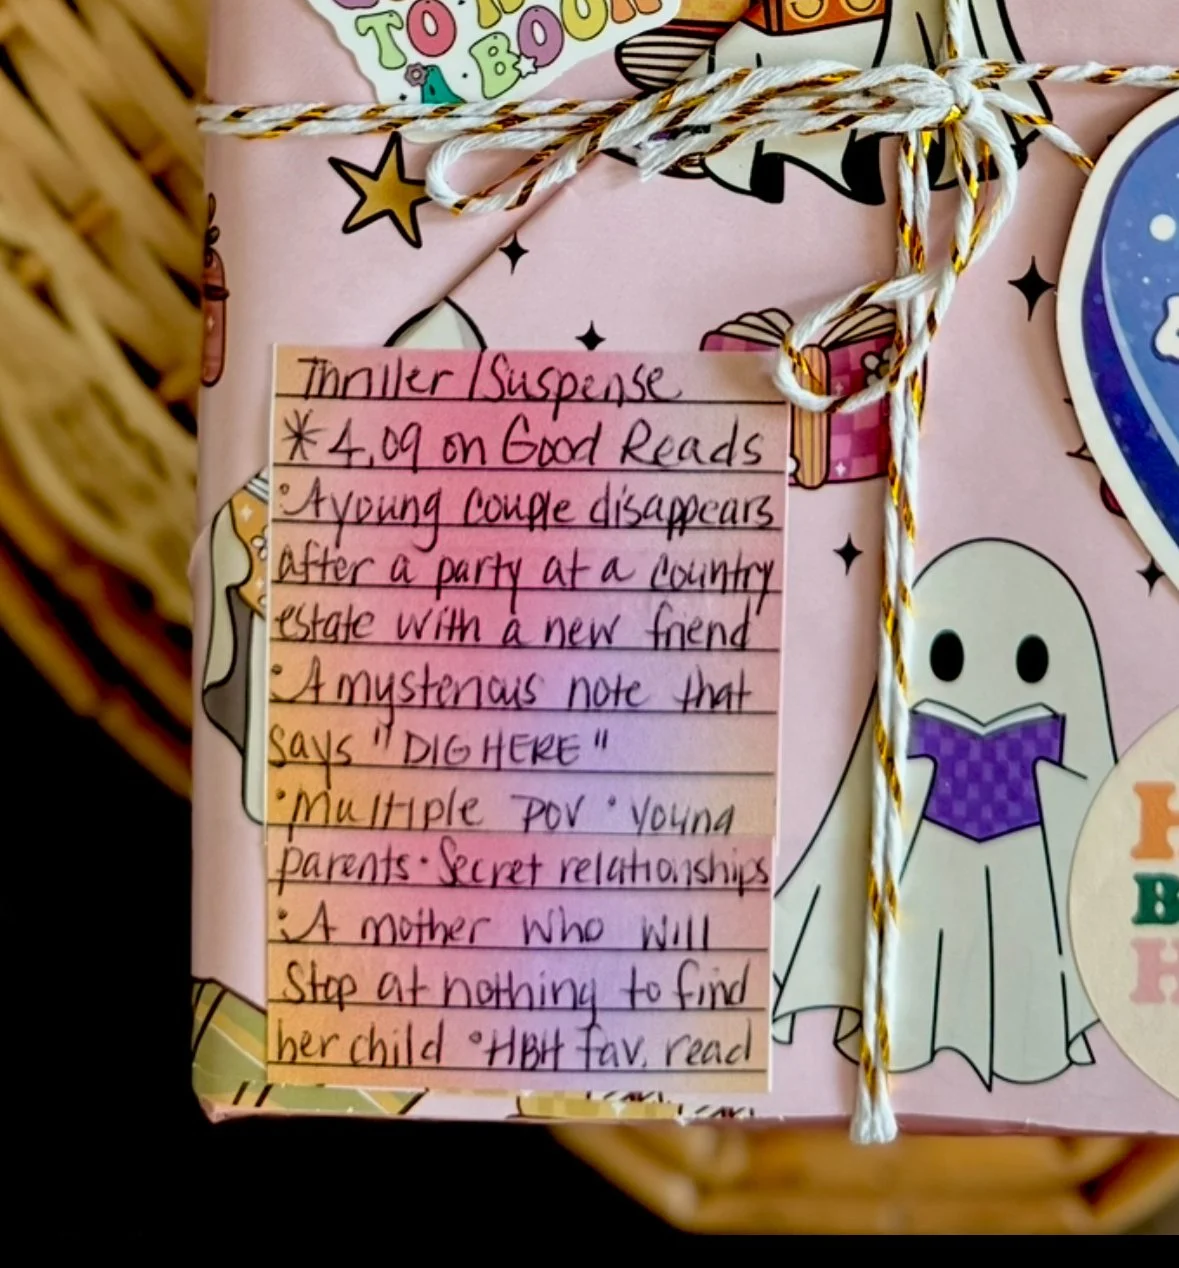 TO
BOOK
Thriller/Suspense
*4.09 on Good Reads
•A young couple disappears
after a party at a country
estate with a new friend
•A mysterious note that
says "DIG HERE"
•Multiple POV •young
parents•Secret relationships
•A mother who will
stop at nothing to find
her child •HBH fav. read
H
B
H